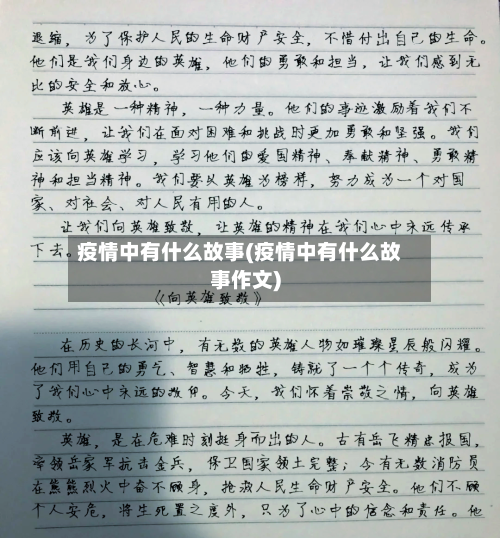 退缩，为了保护人民的生命财产安全，不惜付出自己的生命。
他们是我们身边的英雄，他们的勇敢和担当，让我们感到无
比的安全和放心。
英雄是一种精神，一种力量。他们的事迹激励着我们不
断前进，让我们在面对困难和挑战时更加勇敢和坚强。我们
应该向英雄学习，学习他们的爱国精神、奉献精神、勇敢精
神和担当精神。我们要以英雄为榜样，努力成为一个对国
家、对社会、对人民有用的人。
让我们向英雄致敬，让英雄的精神在我们心中永远传承
下去。
疫情中有什么故事(疫情中有什么故
事作文)
《向英雄致敬》
在历史的长河中，有无数的英雄人物如璀璨星辰般闪耀。
他们用自己的勇气、智慧和牺牲，铸就了一个个传奇，成为
了我们心中永远的敬仰。今天，我们怀着崇敬之情，向英雄
致敬。
英雄，是在危难时刻挺身而出的人。古有岳飞精忠报国，
率领岳家军抗击金兵，保卫国家领土完整；今有无数消防员
在熊熊烈火中奋不顾身，抢救人民生命财产安全。他们不顾
个人安危，将生死置之度外，只为了心中的信念和责任。他